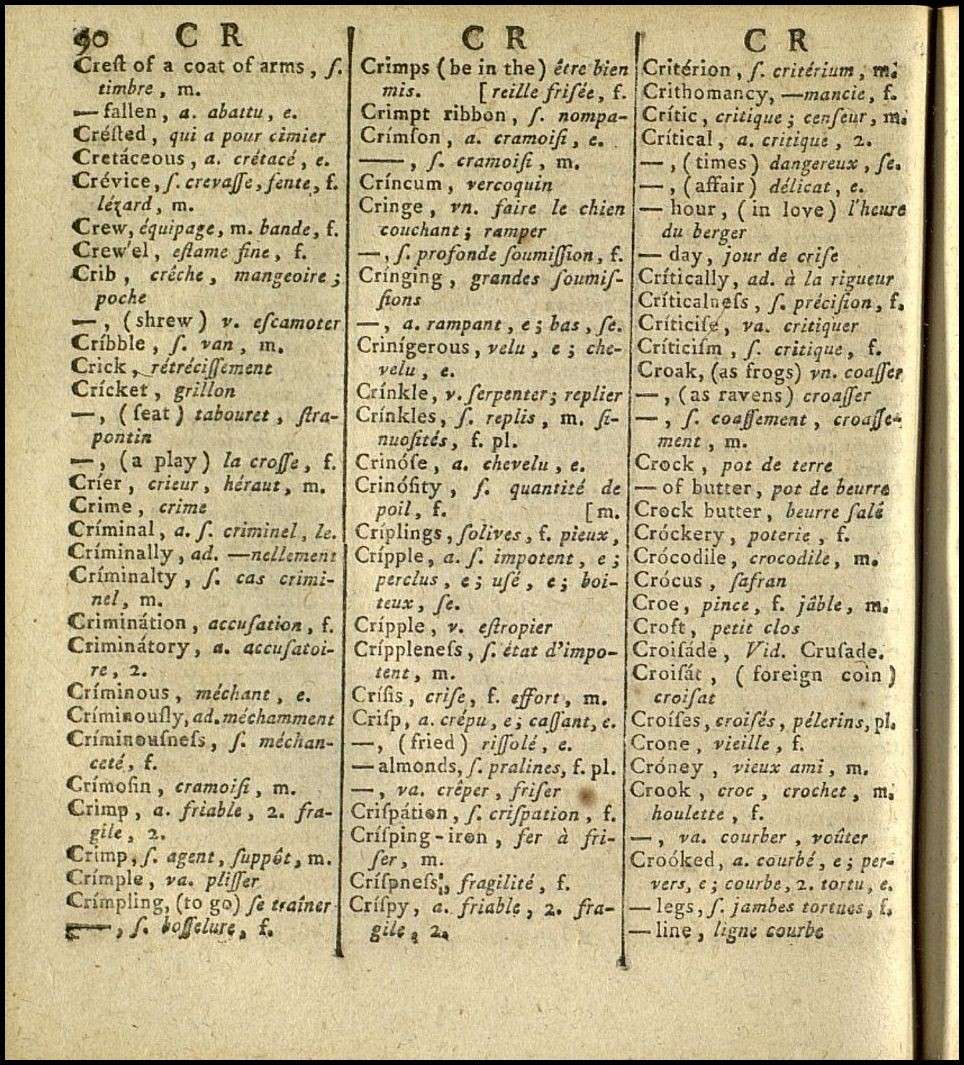 90 C R
Creſt of a coat of arms, ſ.
timbre, m.
— fallen, a. abattu, e.
Créſted, qui a pour cimier
Cretáceous, a. crétacé, e.
Crévice, ſ. crevaſſe, fente, f.
lézard, m.
Crew, équipage, m. bande, f.
Crew'el, eſtame fine, f.
Crib, crêche, mangeoire;
poche
—, (shrew) v. eſcamoter
Críbble, ſ. van, m.
Crick, rétréciſſement
Crícket, grillon
—, (ſeat) tabouret, ſtra-
pontin
—, (a play) la croſſe, f.
Críer, crieur, héraut, m.
Crime, crime
Críminal, a. ſ. criminel, le.
Críminally, ad. —nellement
Críminalty, ſ. cas crimi-
nel, m.
Criminátion, accuſation, f.
Criminátory, a. accuſatoi-
re, 2.
Críminous, méchant, e.
Críminouſly, ad. méchamment
Críminouſneſs, ſ. méchan-
ceté, f.
Crímoſin, cramoiſi, m.
Crimp, a. friable, 2. fra-
gile, 2.
Crimp, ſ. agent, ſuppôt, m.
Crímple, va. pliſſer
Crímpling, (to go) ſe traîner
—, ſ. boſſelure, f.
C R
Crimps (be in the) être bien
mis. [reille friſée, f.
Crimpt ribbon, ſ. nompa-
Crímſon, a. cramoiſi, e.
—, ſ. cramoiſi, m.
Críncum, vercoquin
Cringe, vn. faire le chien
couchant; ramper
—, ſ. profonde ſoumiſſion, f.
Crínging, grandes ſoumiſ-
ſions
—, a. rampant, e; bas, ſe.
Crinígerous, velu, e; che-
velu, e.
Crínkle, v. ſerpenter; replier
Crínkles, ſ. replis, m. ſi-
nuoſités, f. pl.
Crinóſe, a. chevelu, e.
Crinóſity, ſ. quantité de
poil, f. [m.
Críplings, ſolives, f. pieux,
Crípple, a. ſ. impotent, e;
perclus, e; uſé, e; boi-
teux, ſe.
Crípple, v. eſtropier
Críppleneſs, ſ. état d'impo-
tent, m.
Críſis, criſe, f. effort, m.
Criſp, a. crépu, e; caſſant, e.
—, (fried) riſſolé, e.
— almonds, ſ. pralines, f. pl.
—, va. crêper, friſer
Criſpátion, ſ. criſpation, f.
Críſping-iron, fer à fri-
ſer, m.
Críſpneſs, fragilité, f.
Críſpy, a. friable, 2. fra-
gile, 2.
C R
Critérion, ſ. critérium, m.
Crithomancy, —mancie, f.
Crític, critique; cenſeur, m.
Crítical, a. critique, 2.
—, (times) dangereux, ſe.
—, (affair) délicat, e.
— hour, (in love) l'heure
du berger
— day, jour de criſe
Crítically, ad. à la rigueur
Críticalneſs, ſ. préciſion, f.
Críticiſe, va. critiquer
Críticiſm, ſ. critique, f.
Croak, (as frogs) vn. coaſſer
—, (as ravens) croaſſer
—, ſ. coaſſement, croaſſe-
ment, m.
Crock, pot de terre
— of butter, pot de beurre
Crock butter, beurre ſalé
Cróckery, poterie, f.
Crócodile, crocodile, m.
Crócus, ſafran
Croe, pince, f. jâble, m.
Croft, petit clos
Croiſáde, Vid. Cruſade.
Croiſát, (foreign coin)
croiſat
Croíſes, croiſés, pélerins, pl.
Crone, vieille, f.
Cróney, vieux ami, m.
Crook, croc, crochet, m.
houlette, f.
—, va. courber, voûter
Croóked, a. courbé, e; per-
vers, e; courbe, 2. tortu, e.
— legs, ſ. jambes tortues, f.
— line, ligne courbe